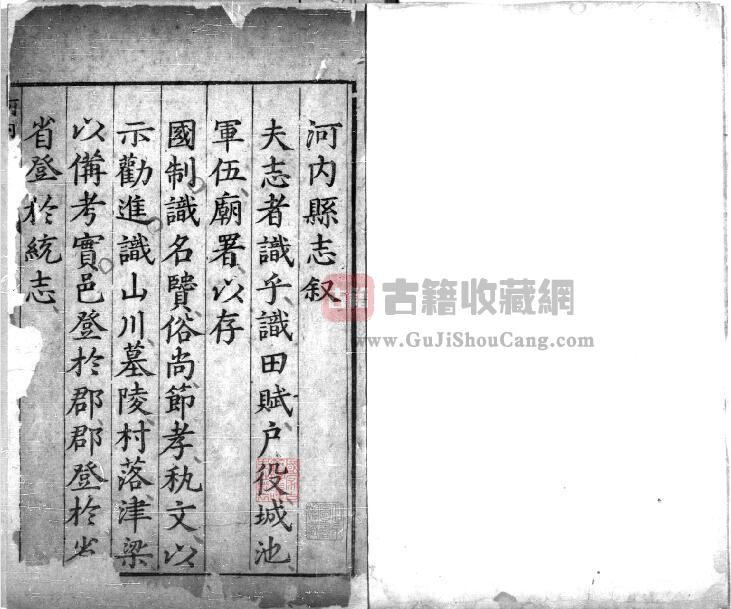 河内縣志叙
夫志者識乎識田賦户役城池
軍伍廟署以存
國制識名賢俗尚節孝秇文以
示勸進識山川墓陵村落津梁
以俻考實邑登於郡郡登於省
省登於統志
古籍收藏網
www.GuJiShouCang.com